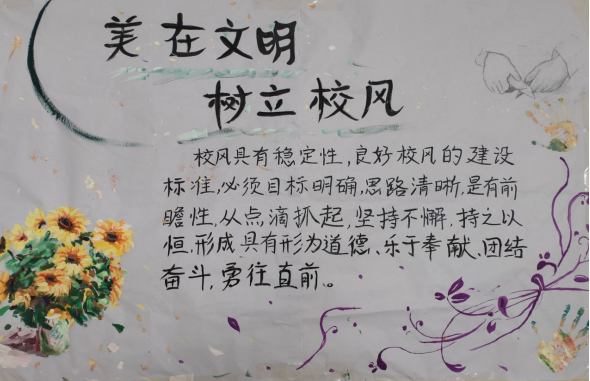 美在文明
树立校风
校风具有稳定性,良好校风的建设
标准,必须目标明确,思路清晰,是有前
瞻性,从点滴抓起,坚持不懈,持之以
恒,形成具有形为道德、乐于奉献、团结
奋斗,勇往直前。